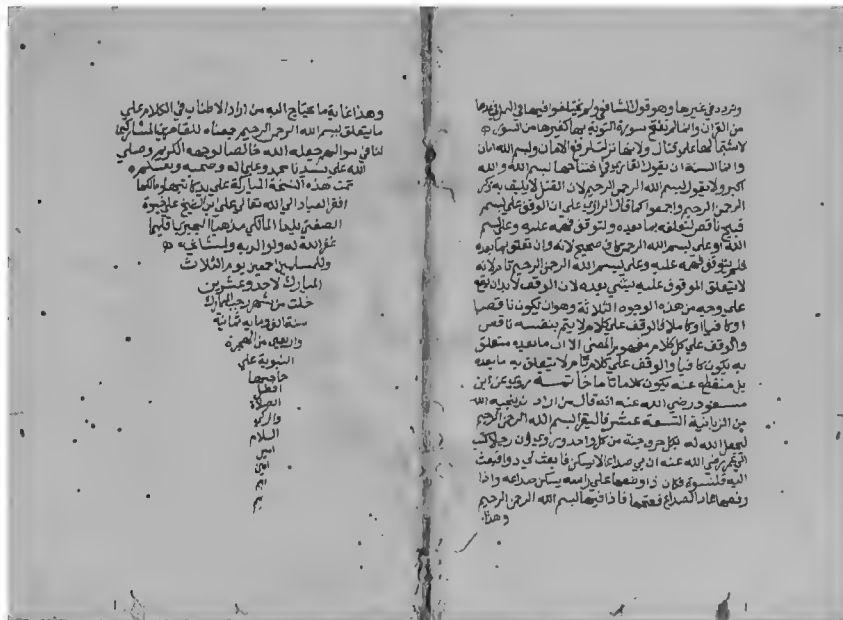 وتردد في غيرها وهو قول الشافعي ولم يختلفوا فيها في النمل في عدها
من القران وانما لم يفتتح سورة التوبة بها كغيرها من السور
لاشتمالها على قتال ولانها نزلت لرفع الامان وبسم الله امان
وانما السنة ان يقول القاري في افتتاحها بسم الله والله
اكبر ولا يقول بسم الله الرحمن الرحيم لان القتل لا يليق به ذكر
الرحمن الرحيم واجمعوا كما قال الرازي على ان الوقف على بسم
قبيح ناقص لتعلقه بما بعده ولتوقف فهمه عليه وعلى بسم
الله او على بسم الله الرحمن كاف صحيح لانه وان تعلق بما بعده
فلم يتوقف فهمه عليه وعلى بسم الله الرحمن الرحيم تام لانه
لا يتعلق الموقوف عليه بشي بعده لان الوقف لا بد ان يقع
على وجه من هذه الوجوه الثلاثة وهو ان تكون ناقصا
او كافيا او كاملا فالوقف على كلام لا يتم بنفسه ناقص
والوقف على كل كلام مفهوم المعنى الا ان ما بعده متعلق
به يكون كافيا والوقف على كلام تام لا يتعلق به ما بعده
بل منقطع عنه يكون كلاما تاما خاتمة روي عن ابن
مسعود رضي الله عنه انه قال من اراد ان ينجيه الله
من الزبانية التسعة عشر فاليقرا بسم الله الرحمن الرحيم
ليجعل الله له بكل حرف جنة من كل واحد وروي ان رجلا كتب
الى عمر رضي الله عنه ان بي صداعا لا يسكن فابعث لي دوا فبعث
اليه قلنسوة فكان اذا وضعها على راسه يسكن صداعه واذا
رفعها عاد الصداع ففتحها فاذا فيها بسم الله الرحمن الرحيم
وهذا
وهذا غاية ما يحتاج اليه من اراد الاطناب في الكلام على
ما يتعلق ببسم الله الرحمن الرحيم جمعناه للقاصرين المشاركين
لنا في سوالهم جعله الله خالصا لوجهه الكريم وصلى
الله على سيدنا محمد وعلى اله وصحبه وسلم
تمت هذه النسخة المباركة على يد كاتبها ومالكها
افقر العباد الى الله تعالى على ابن الشيخ على
بلدا المالكي مذهبا البحيري اقليما
غفر الله له ولوالديه ولمشايخه
وللمسلمين اجمعين يوم الثلاث
المبارك لاحد وعشرين
خلت من شهر رجب المبارك
سنة الف ومايه ثمانية
واربعين من الهجرة
النبوية على
صاحبها
افضل
الصلاة
وازكى
السلام
امين
امين